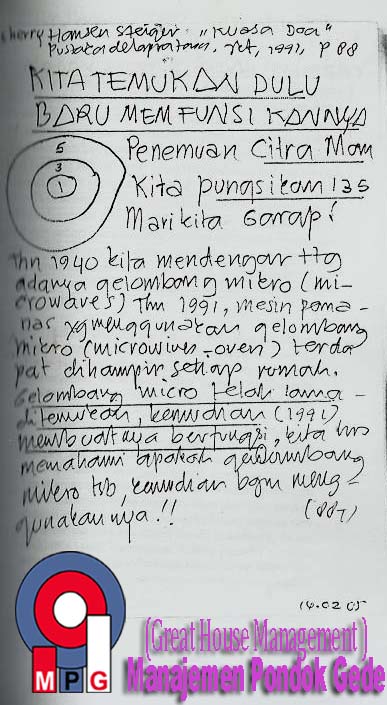 cherry Hansen Steiger. "Kuasa Doa"
Pustaka delapratama, Jkt, 1991, p 88
KITA TEMUKAN DULU
BARU MEMFUNSIKANNYA
5
3
1
Penemuan Citra Mom
Kita pungsikan 135
Mari kita Garap!
Thn 1940 kita mendengar ttg
adanya gelombang mikro (mi-
crowaves) Thn 1991, mesin pema-
nas yg menggunakan gelombang
mikro (microwives-oven) terda
pat dihampir setiap rumah.
Gelombang micro telah lama
ditemukan, kemudian (1991)
membuatnya berfungsi, kita hrs
memahami apakah gelombang
mikro tsb, kemudian bgm meng-
gunakannya!!
14.02 05
MPG
(Great House Management)
Manajemen Pondok Gede